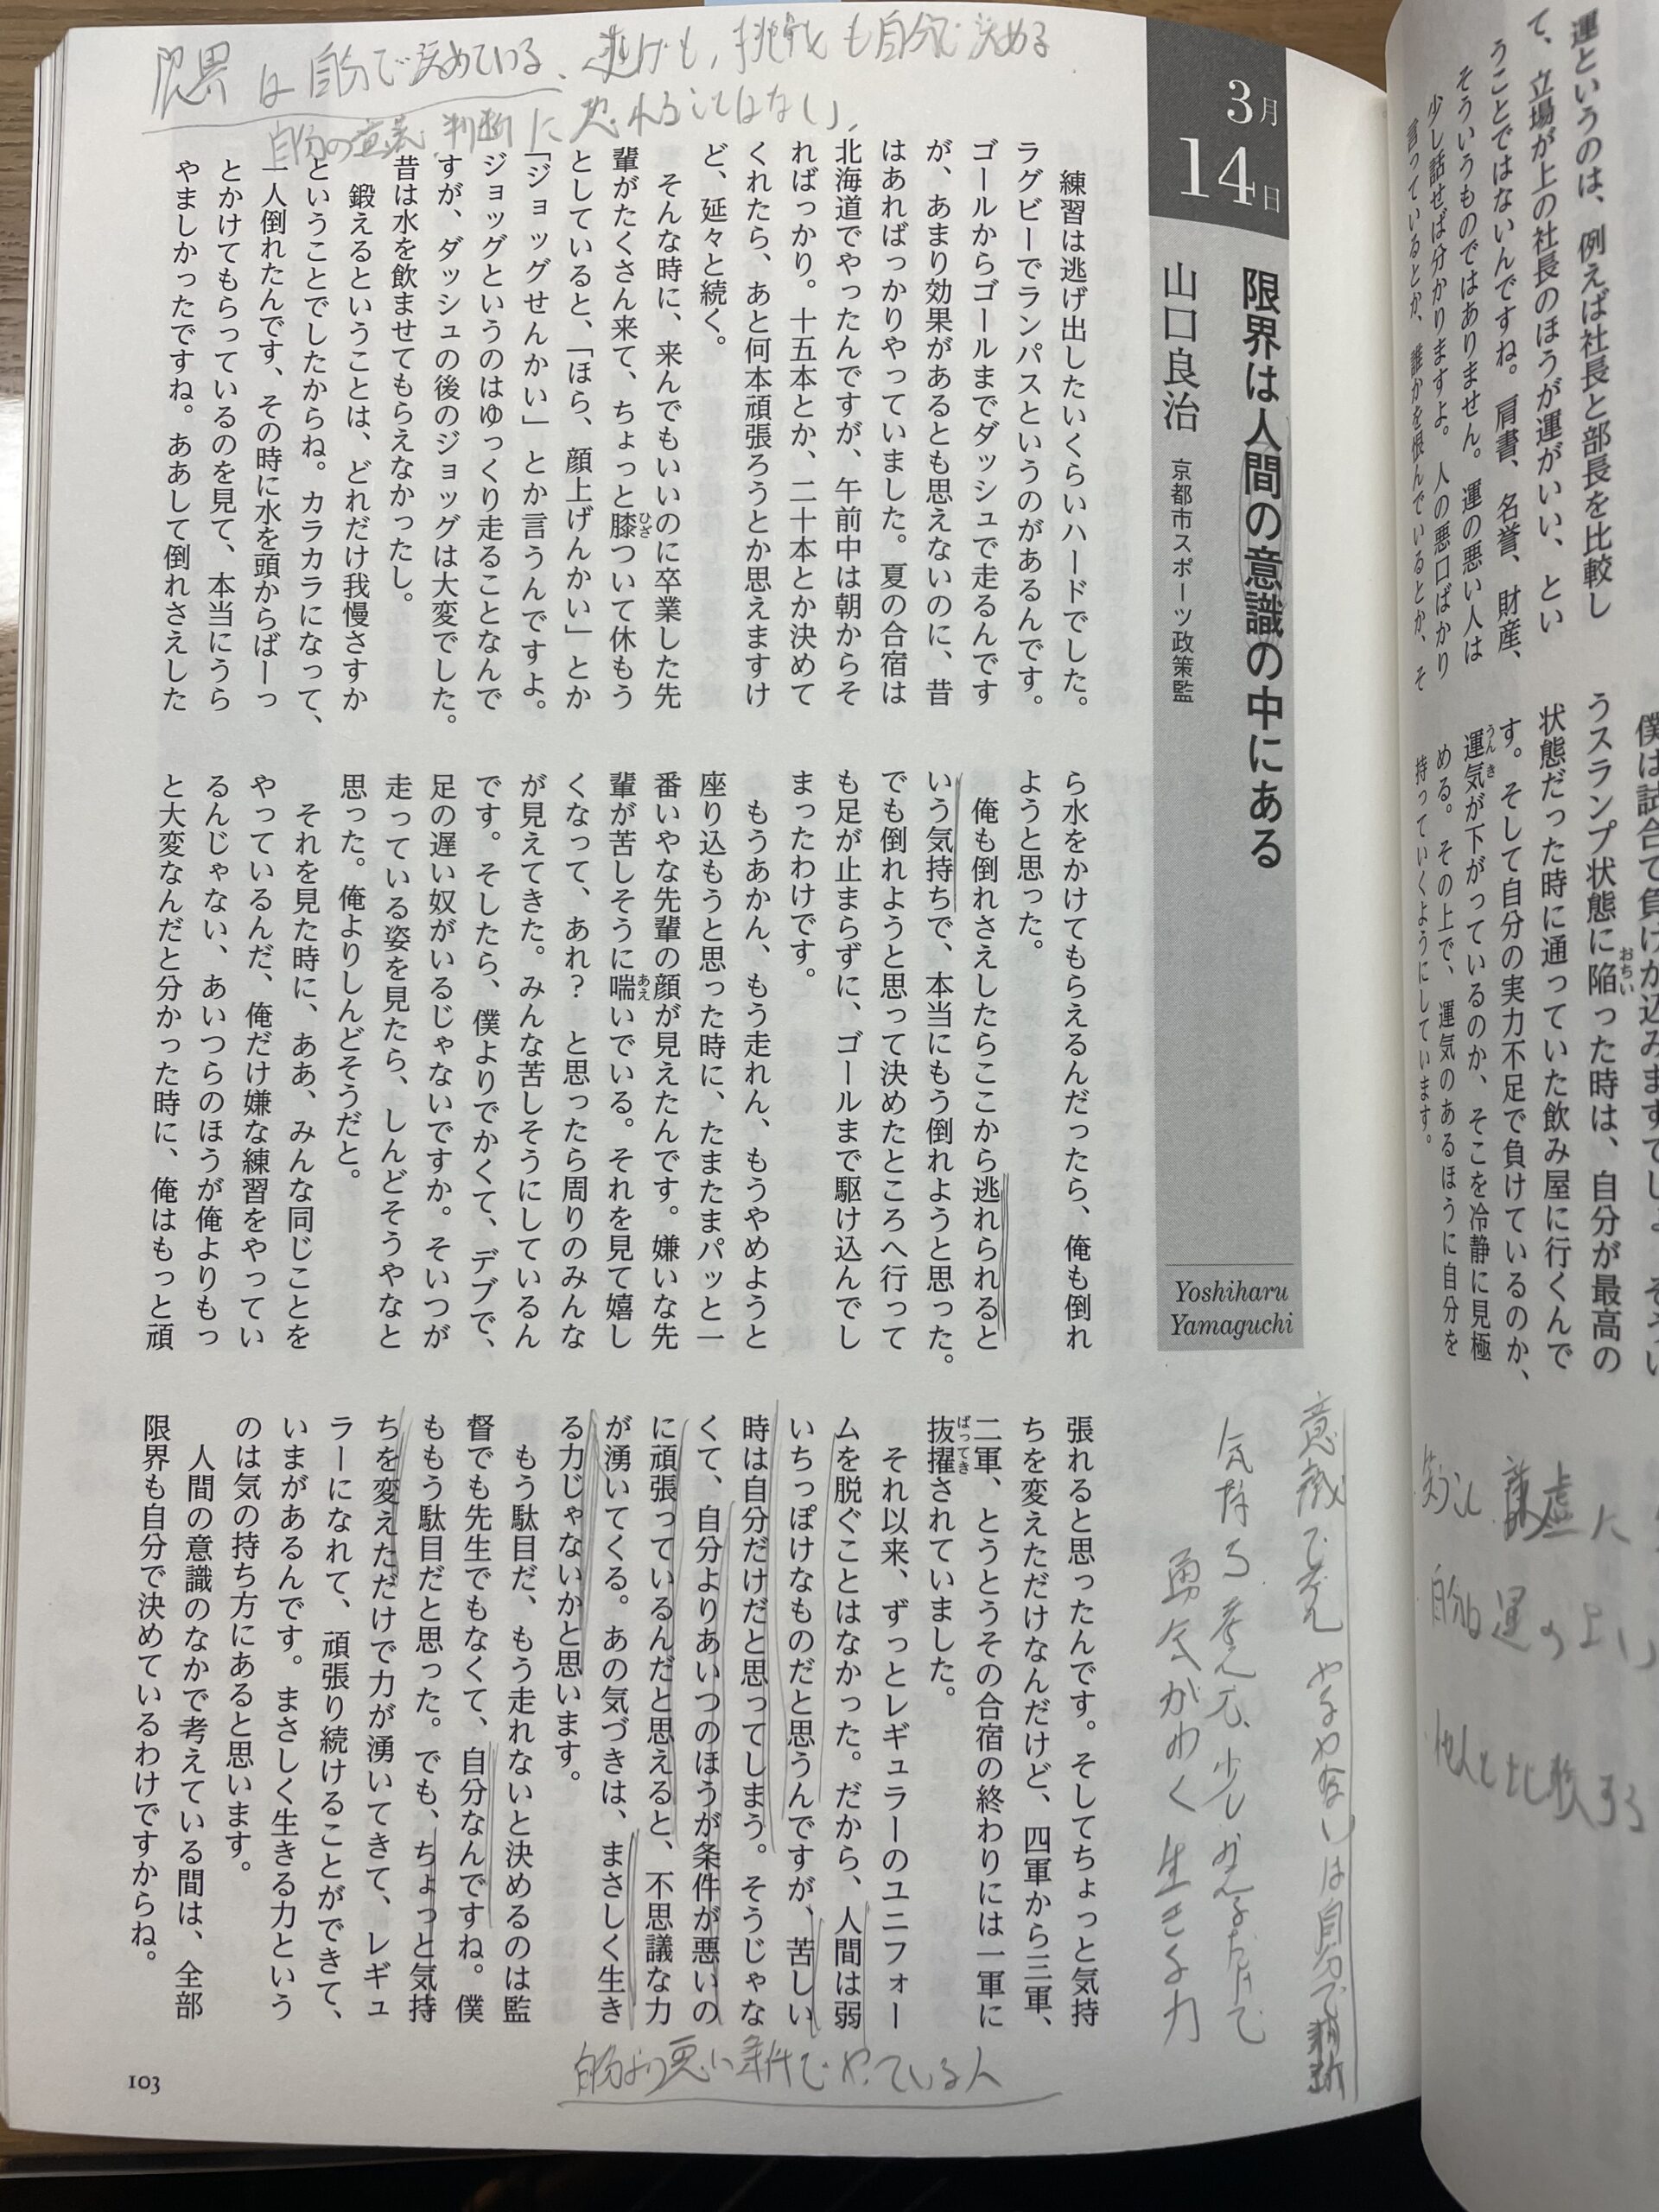 限界は自分で決めている、逃げも、挑戦も自分で決める
自分の意義、判断に恐れることはない、
3月
14日
限界は人間の意識の中にある
山口良治 京都市スポーツ政策監
Yoshiharu
Yamaguchi
練習は逃げ出したいくらいハードでした。
ラグビーでランパスというのがあるんです。
ゴールからゴールまでダッシュで走るんです
が、あまり効果があるとも思えないのに、昔
はあればっかりやっていました。夏の合宿は
北海道でやったんですが、午前中は朝からそ
ればっかり。十五本とか、二十本とか決めて
くれたら、あと何本頑張ろうとか思えますけ
ど、延々と続く。
そんな時に、来んでもいいのに卒業した先
輩がたくさん来て、ちょっと膝ひざついて休もう
としていると、「ほら、顔上げんかい」とか
「ジョッグせんかい」とか言うんですよ。
ジョッグというのはゆっくり走ることなんで
すが、ダッシュの後のジョッグは大変でした。
昔は水を飲ませてもらえなかったし。
鍛えるということは、どれだけ我慢さすか
ということでしたからね。カラカラになって、
一人倒れたんです、その時に水を頭からばーっ
とかけてもらっているのを見て、本当にうら
やましかったですね。ああして倒れさえした
ら水をかけてもらえるんだったら、俺も倒れ
ようと思った。
俺も倒れさえしたらここから逃れられると
いう気持ちで、本当にもう倒れようと思った。
でも倒れようと思って決めたところへ行って
も足が止まらずに、ゴールまで駆け込んでし
まったわけです。
もうあかん、もう走れん、もうやめようと
座り込もうと思った時に、たまたまパッと一
番いやな先輩の顔が見えたんです。嫌いな先
輩が苦しそうに喘あえいでいる。それを見て嬉し
くなって、あれ? と思ったら周りのみんな
が見えてきた。みんな苦しそうにしているん
です。そしたら、僕よりでかくて、デブで、
足の遅い奴がいるじゃないですか。そいつが
走っている姿を見たら、しんどそうやなと
思った。俺よりしんどそうだと。
それを見た時に、ああ、みんな同じことを
やっているんだ、俺だけ嫌な練習をやってい
るんじゃない、あいつらのほうが俺よりもっ
と大変なんだと分かった時に、俺はもっと頑
張れると思ったんです。そしてちょっと気持
ちを変えただけなんだけど、四軍から三軍、
二軍、とうとうその合宿の終わりには一軍に
抜擢ばってきされていました。
それ以来、ずっとレギュラーのユニフォー
ムを脱ぐことはなかった。だから、人間は弱
いちっぽけなものだと思うんですが、苦しい
時は自分だけだと思ってしまう。そうじゃな
くて、自分よりあいつのほうが条件が悪いの
に頑張っているんだと思えると、不思議な力
が湧いてくる。あの気づきは、まさしく生き
る力じゃないかと思います。
もう駄目だ、もう走れないと決めるのは監
督でも先生でもなくて、自分なんですね。僕
ももう駄目だと思った。でも、ちょっと気持
ちを変えただけで力が湧いてきて、レギュ
ラーになれて、頑張り続けることができて、
いまがあるんです。まさしく生きる力という
のは気の持ち方にあると思います。
人間の意識のなかで考えている間は、全部
限界も自分で決めているわけですからね。
意識で考え やるやらないは自分で判断
気持ち 考え方、少し変えるだけで
勇気がわく 生きる力
自分より悪い条件でやっている人
103
運というのは、例えば社長と部長を比較し
て、立場が上の社長のほうが運がいい、とい
うことではないんですね。肩書、名誉、財産、
そういうものではありません。運の悪い人は
少し話せば分かりますよ。人の悪口ばかり
言っているとか、誰かを恨んでいるとか、そ
僕は試合で負けが込みますでしょ。そうい
うスランプ状態に陥おちいった時は、自分が最高の
状態だった時に通っていた飲み屋に行くんで
す。そして自分の実力不足で負けているのか、
運気うんきが下がっているのか、そこを冷静に見極
める。その上で、運気のあるほうに自分を
持っていくようにしています。
謙虚に
自分は運の
他人と比較する